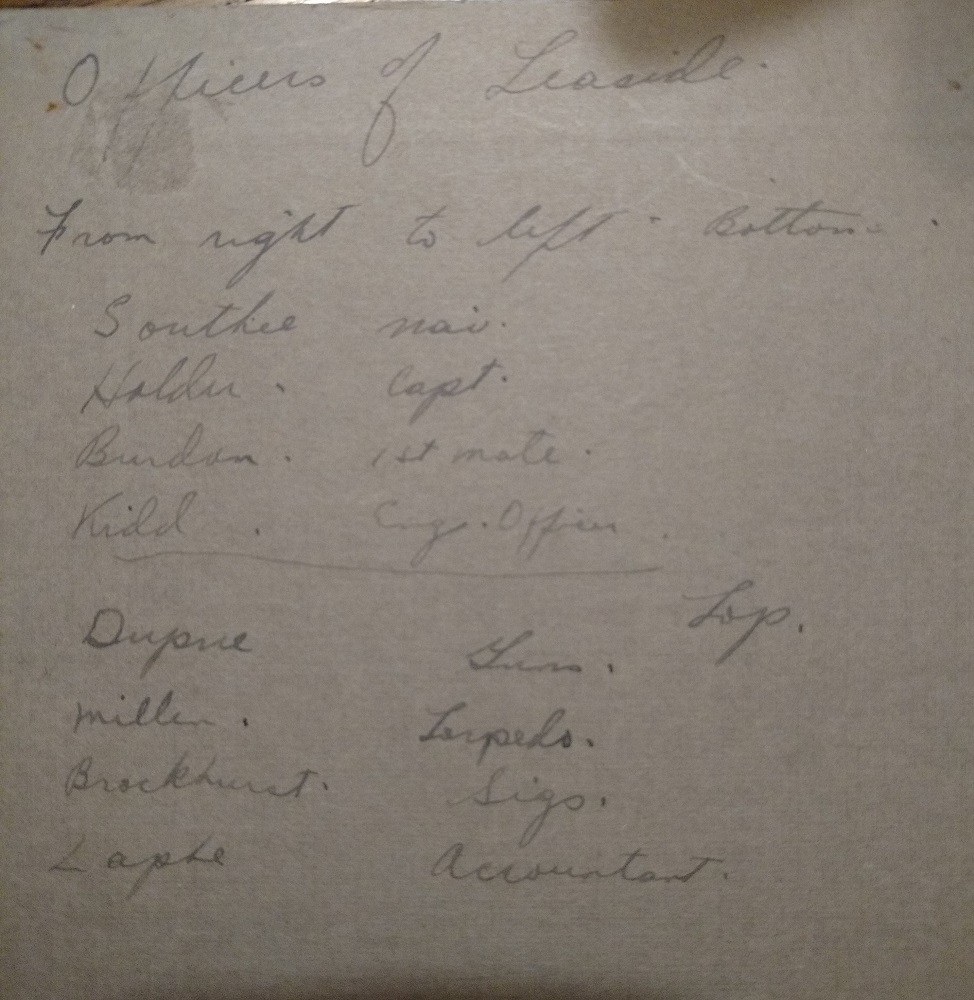 Officers of Leaside.
From right to left - Bottom -
Southee nav.
Holder. Capt.
Burdon. 1st mate.
Kidd. Eng. Officer.
Top.
Dupre Guns.
Miller. Torpedo.
Brockhurst. Sigs.
Accountant.